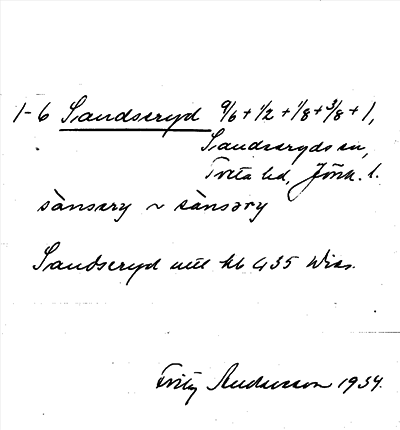 1-6 Sandseryd 9/6 + 1/2 + 1/8 + 3/8 + 1,
Sandseryds sn,
Tveta hd, Jönk. l.
sànsery ~ sànsəry
Sandseryd utt hb 435 Wiss.
Fritz Andersson 1934.